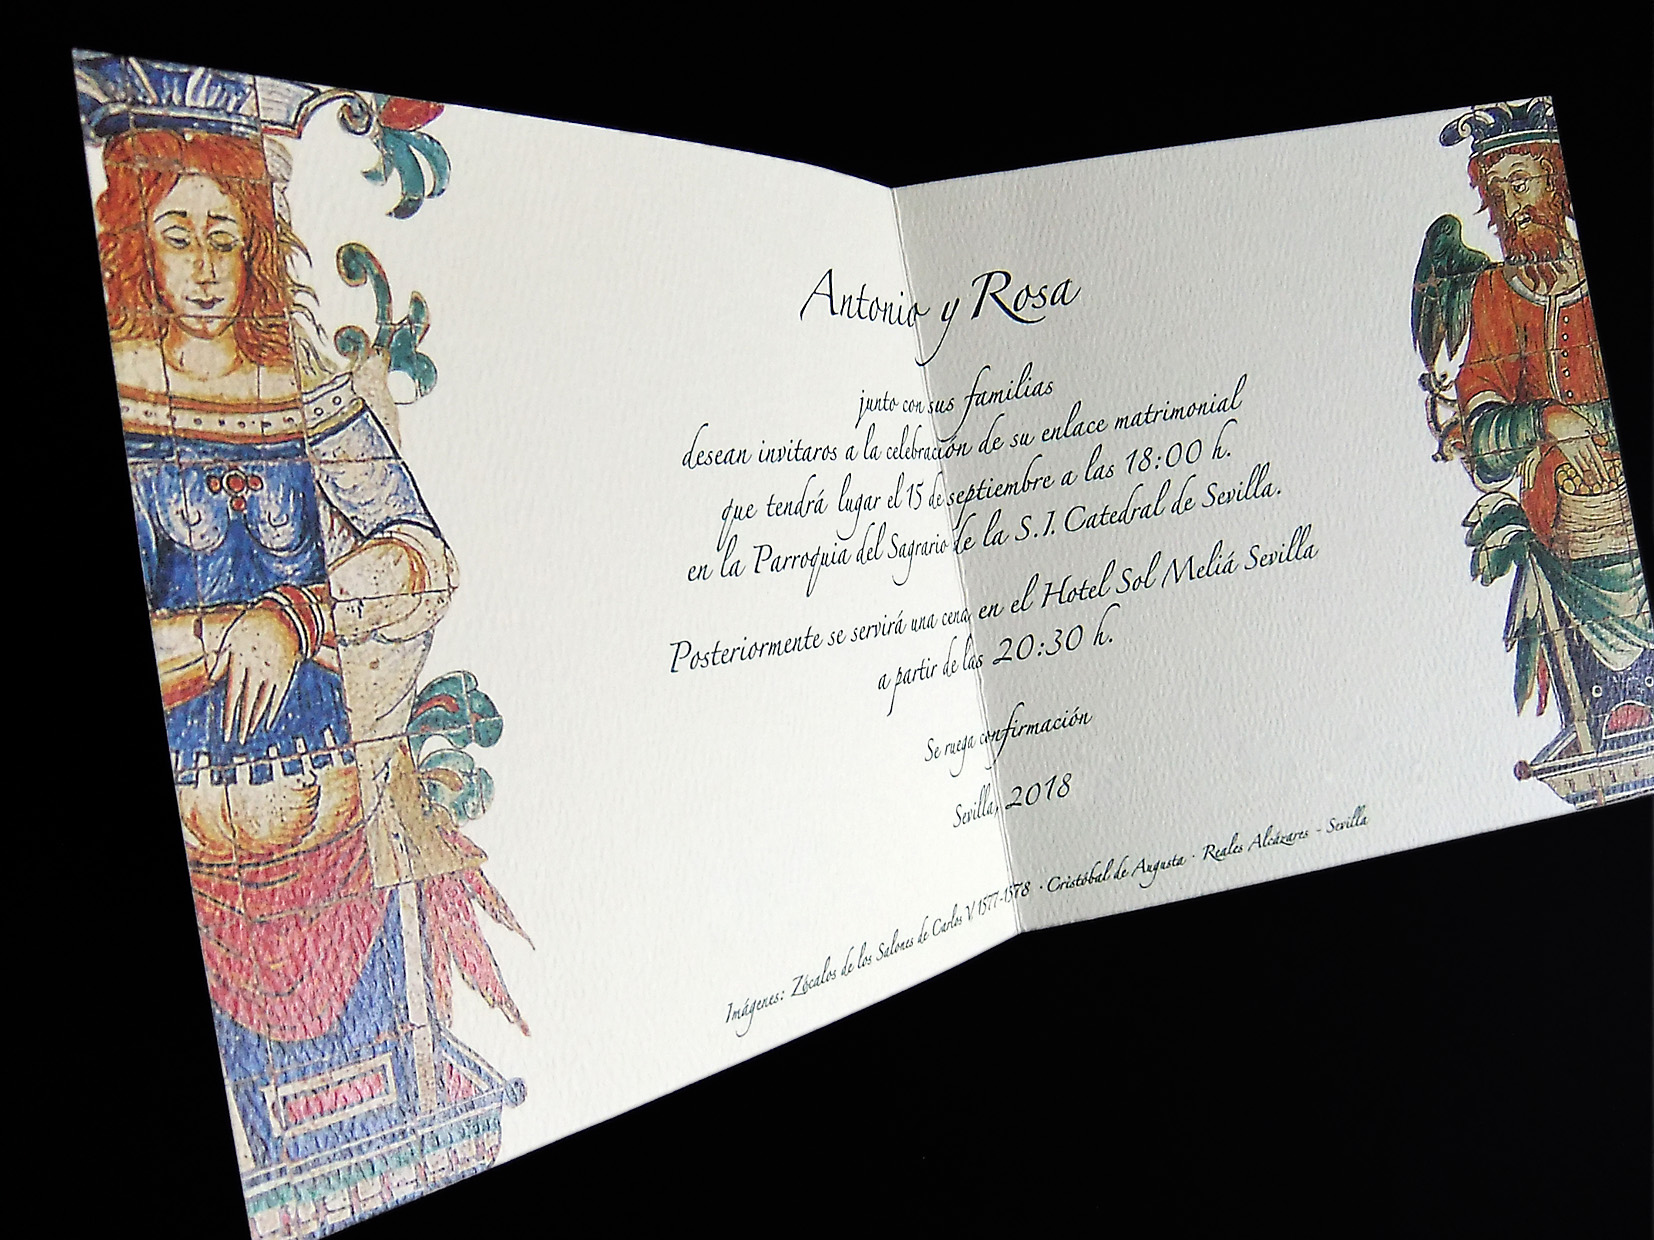 Antonio y Rosa
junto con sus familias
desean invitaros a la celebración de su enlace matrimonial
que tendrá lugar el 15 de septiembre a las 18:00 h.
en la Parroquia del Sagrario de la S.I. Catedral de Sevilla.
Posteriormente se servirá una cena en el Hotel Sol Meliá Sevilla
a partir de las 20:30 h.
Se ruega confirmación
Sevilla, 2018
Imágenes: Zócalos de los Salones de Carlos V. 1577-1578 · Cristóbal de Augusta · Reales Alcázares - Sevilla